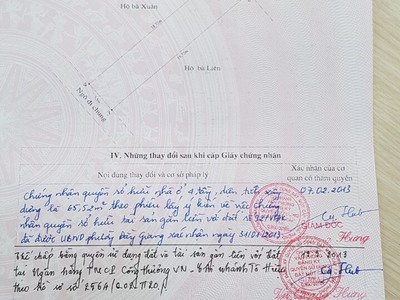 Hộ bà Xuân
Hộ bà Liên
Ngõ đi chung
IV. Những thay đổi sau khi cấp Giấy chứng nhận
Nội dung thay đổi và cơ sở pháp lý
Xác nhận của cơ
quan có thẩm quyền
Chứng nhận quyền sở hữu nhà ở 4 tầng, diện tích xây
07.02.2013
dựng là 65,5m² theo phiếu lấy ý kiến về việc chứng
nhận quyền sở hữu tài sản gắn liền với đất số
đã được UBND phường xác nhận ngày 31/01/2013
GIÁM ĐỐC
Thế chấp bằng quyền sử dụng đất và tài sản gắn liền với đất
tại Ngân hàng TMCP Công thương VN - Chi nhánh Tô Hiệu
theo hồ sơ số